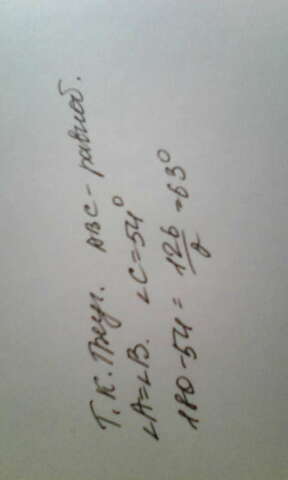 Т. к. Треуг. ABC - равноб.
∠A=∠B. ∠C=54°
180-54 = 126/2 =63°